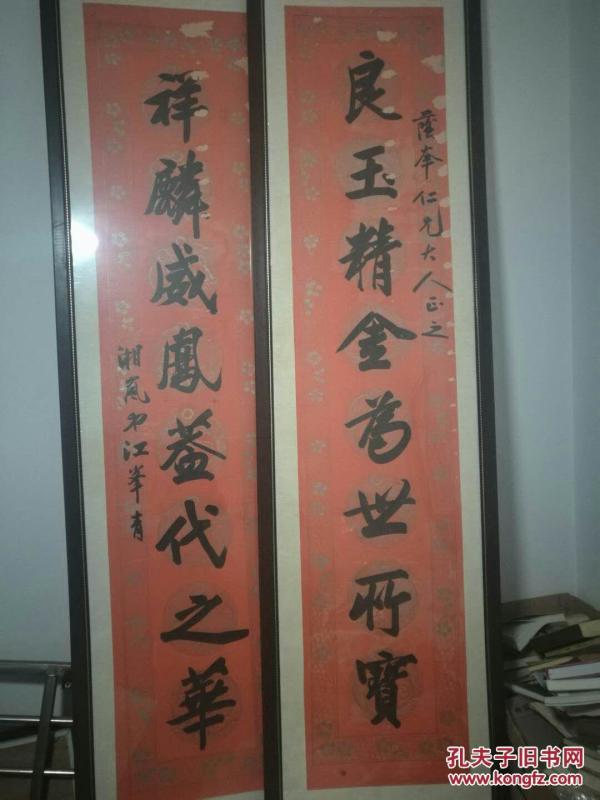 蔭奉仁兄大人正之
良玉精金為世所寶
祥麟威鳳蓋代之華
湘嵐弟江峯青
孔夫子旧书网
www.kongfz.com